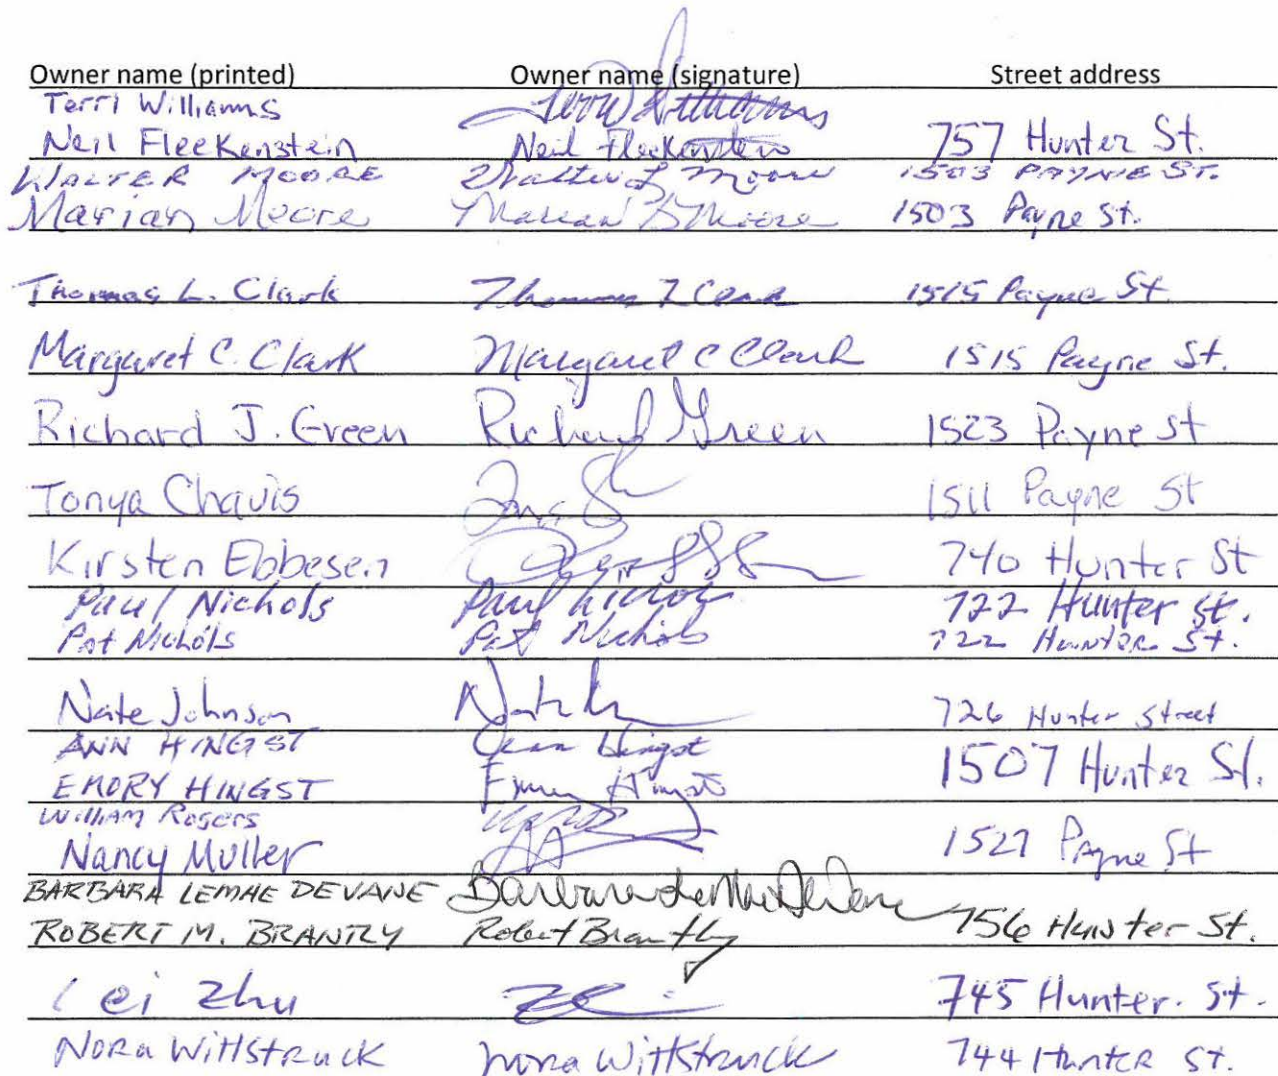 Owner name (printed) Owner name (signature) Street address
Terri Williams Terri Williams
Neil Fleckenstein Neil Fleckenstein 757 Hunter St.
WALTER MOORE Walter L Moore 1503 PAYNE ST.
Marian Moore Marian B Moore 1503 Payne St.
Thomas L. Clark Thomas L Clark 1515 Payne St.
Margaret C. Clark Margaret C Clark 1515 Payne St.
Richard J. Green Richard J Green 1523 Payne St
Tonya Chavis 1511 Payne St
Kirsten Ebbesen 740 Hunter St
Paul Nichols Paul Nichols 722 Hunter St.
Pat Nichols Pat Nichols 722 Hunter St.
Nate Johnson 726 Hunter Street
ANN HINGST Ann Hingst
EMORY HINGST Emory Hingst 1507 Hunter St.
William Rogers
Nancy Muller 1527 Payne St
BARBARA LEMAE DEVANE Barbara DeVane
ROBERT M. BRANTLY Robert Brantly 756 Hunter St.
Lei Zhu 745 Hunter. St.
NORA WITTSTRUCK Nora Wittstruck 744 Hunter St.